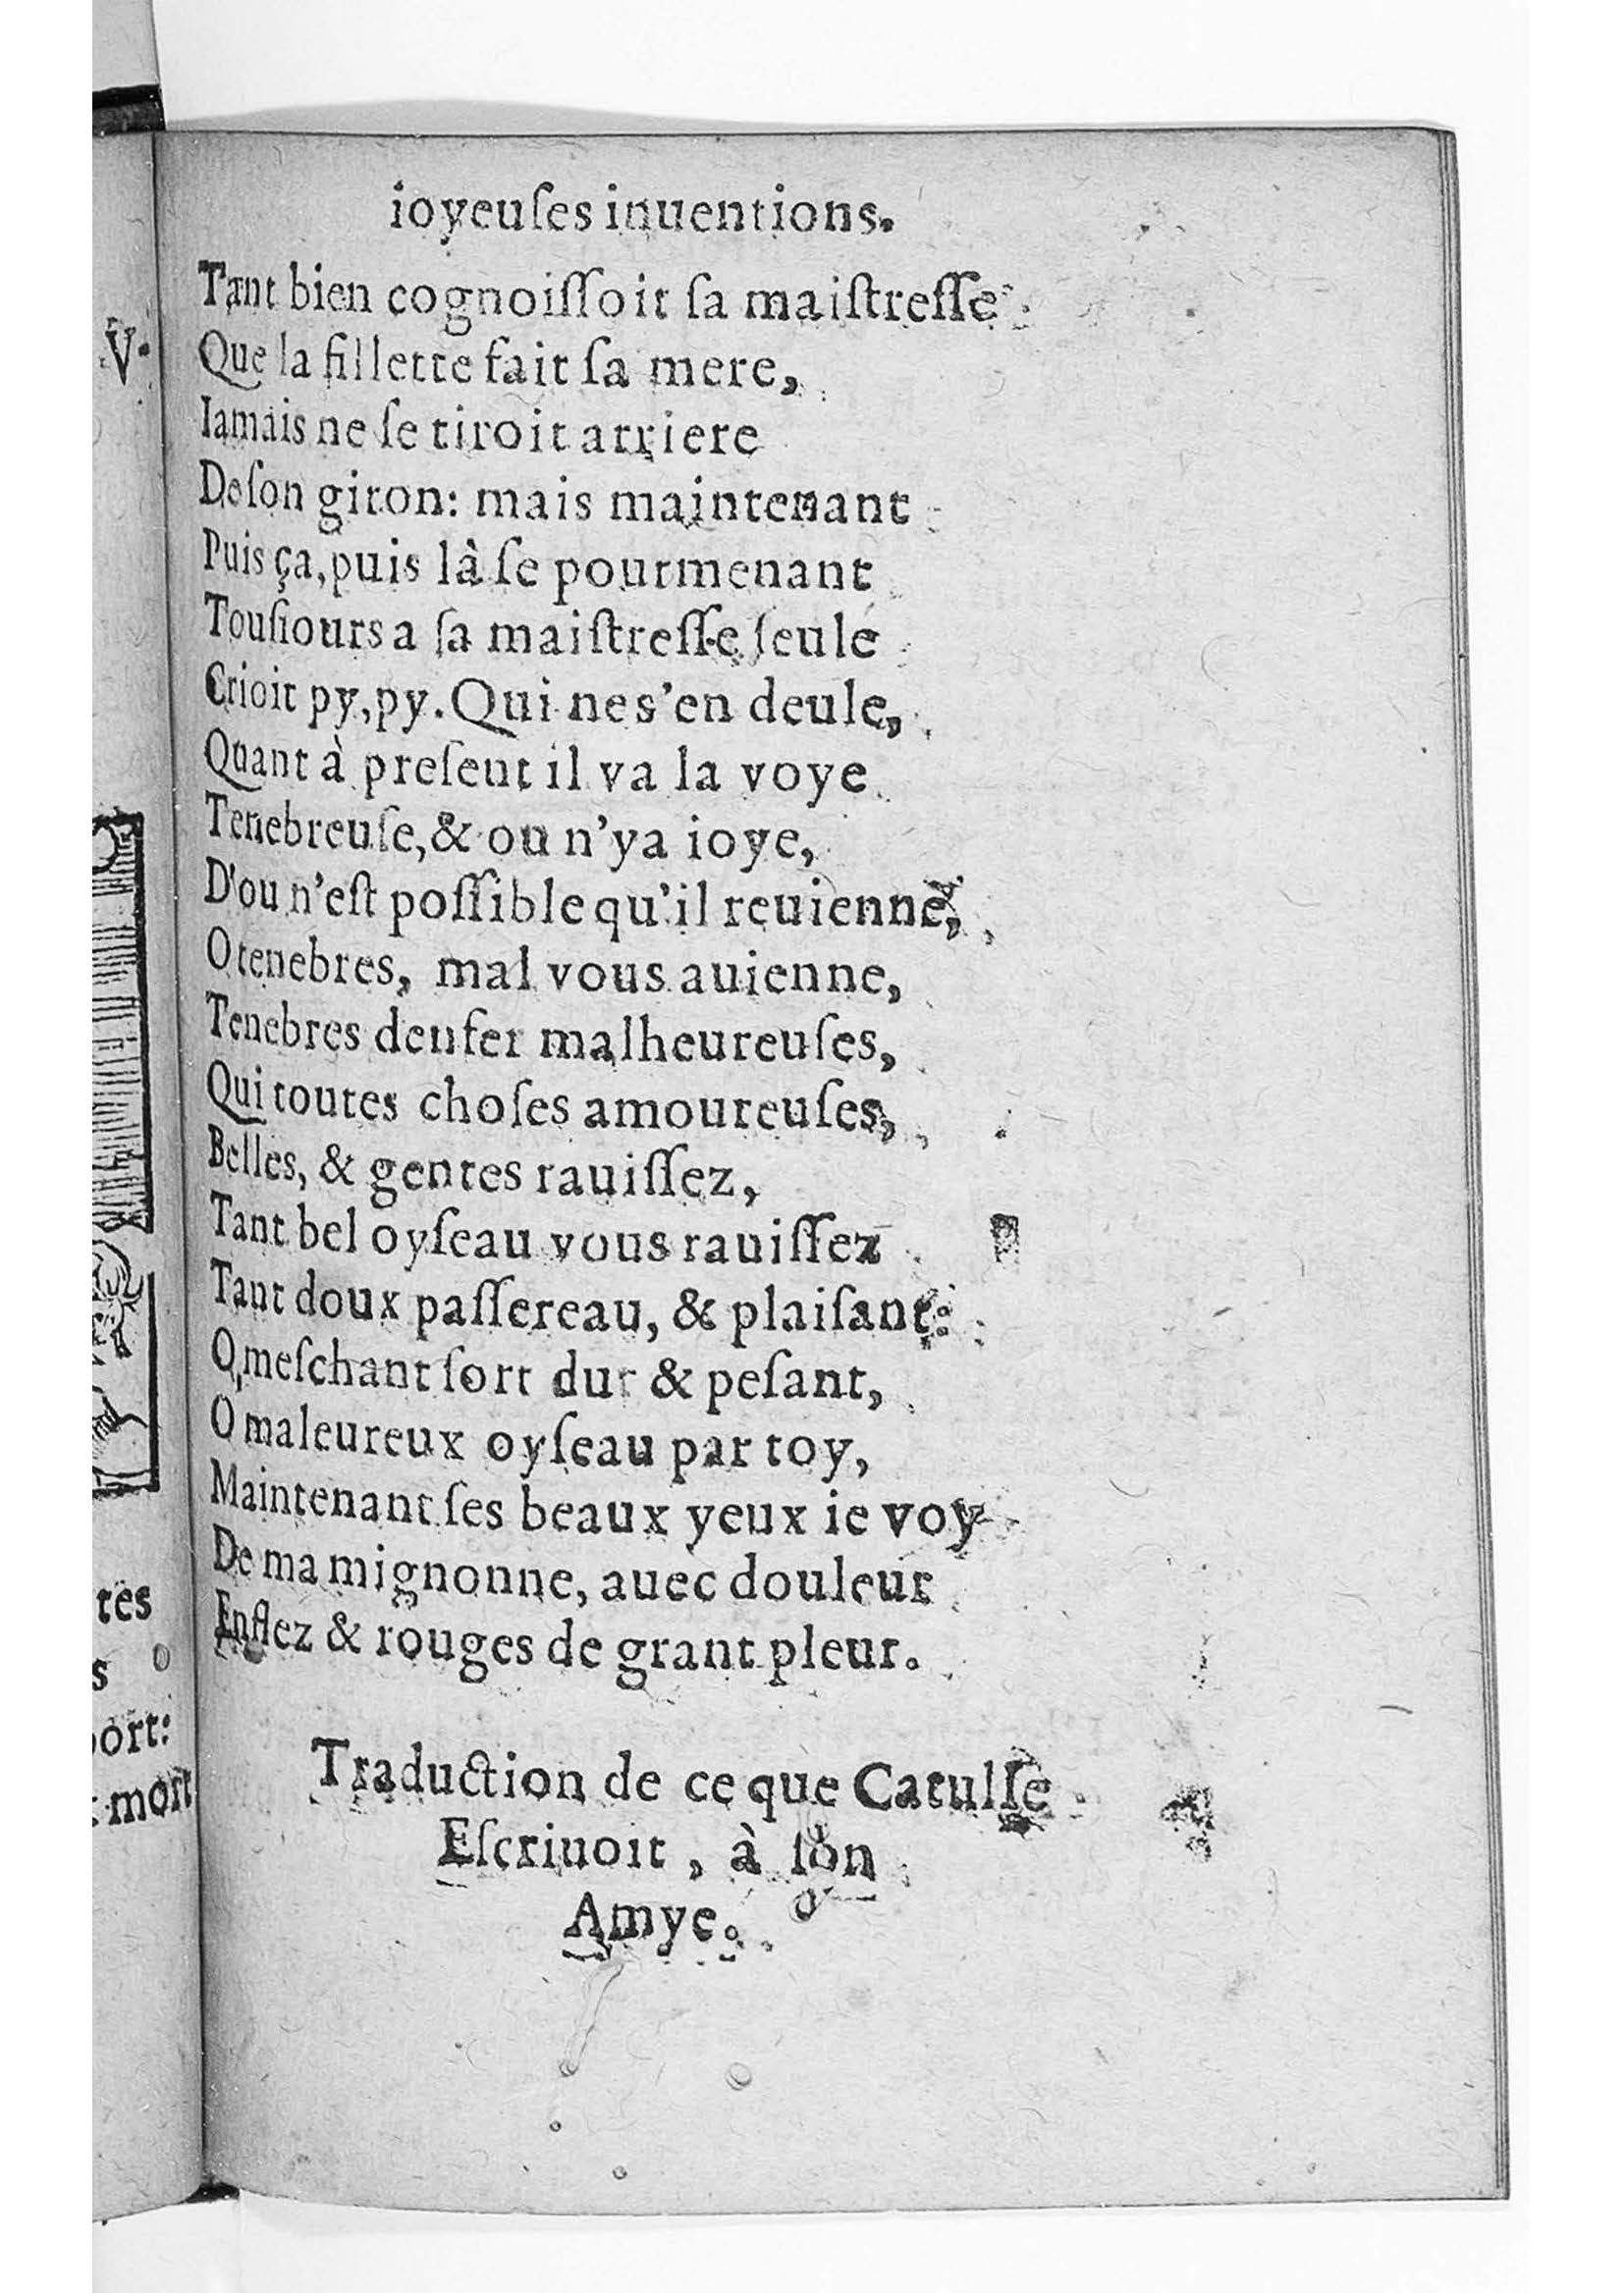 ioyeuſes inuentions.
Tant bien cognoiſſoit ſa maiſtreſſe
Que la fillette fait ſa mere,
Iamais ne ſe tiroit arriere
De ſon giron: mais maintenant
Puis ça, puis là ſe pourmenant
Touſiours a ſa maiſtreſſe ſeule
Crioit py, py. Qui ne s'en deule,
Quant à preſent il va la voye
Tenebreuſe, & ou n'ya ioye,
D'ou n'eſt poſſible qu'il reuienne,
O tenebres, mal vous auienne,
Tenebres denfer malheureuſes,
Qui toutes choſes amoureuſes,
Belles, & gentes rauiſſez,
Tant bel oyſeau vous rauiſſez
Tant doux paſſereau, & plaiſant:
O meſchant ſort dur & peſant,
O maleureux oyſeau par toy,
Maintenant ſes beaux yeux ie voy
De ma mignonne, auec douleur
Enflez & rouges de grant pleur.
Traduction de ce que Catulle
Eſcriuoit, à ſon
Amye.
V.
tes
s
port:
mort